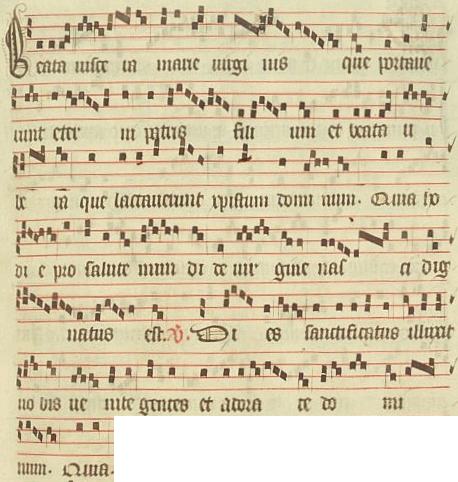 Beata visce ra marie virgi nis que portave
runt eter ni patris fili um et beata u
be ra que lactaverunt xpistum domi num. Quia ho
di e pro salute mun di de vir gine nas ci dig
natus est. V. Di es sanctificatus illuxit
no bis ve nite gentes et adora te do mi
num. Quia.